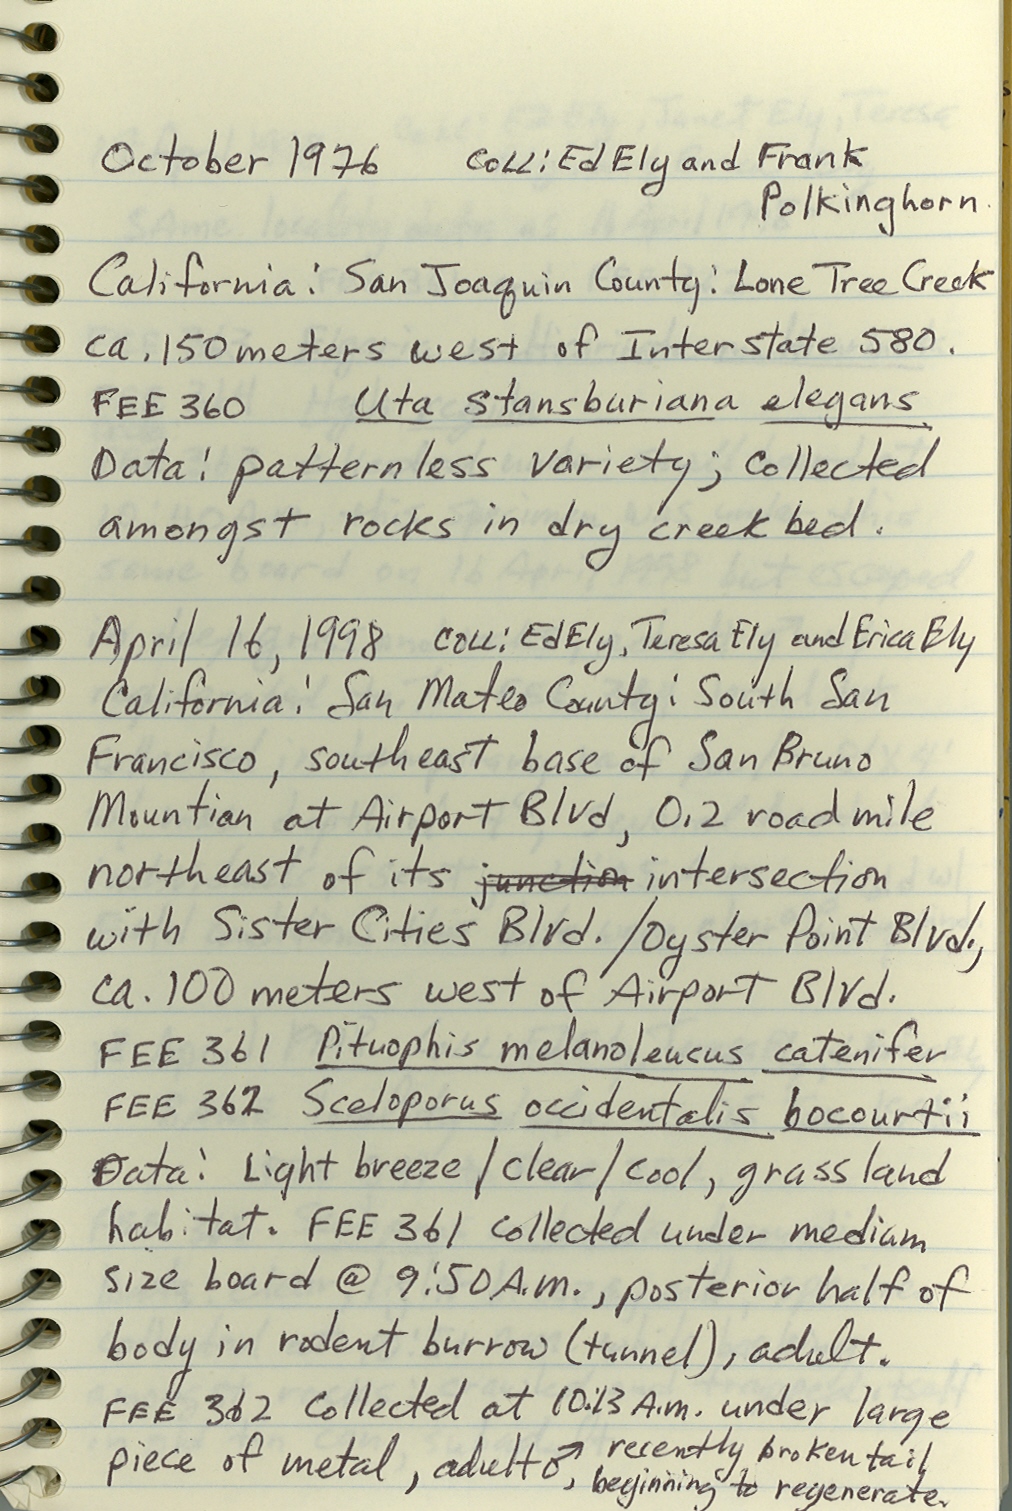 October 1976 COLL: Ed Ely and Frank
Polkinghorn.
California: San Joaquin County: Lone Tree Creek
ca. 150 meters west of Interstate 580.
FEE 360 Uta stansburiana elegans
Data: patternless variety; collected
amongst rocks in dry creek bed.
April 16, 1998 COLL: Ed Ely, Teresa Ely and Erica Ely
California: San Mateo County: South San
Francisco, southeast base of San Bruno
Mountian at Airport Blvd, 0.2 road mile
northeast of its junction intersection
with Sister Cities Blvd. /Oyster Point Blvd.,
ca. 100 meters west of Airport Blvd.
FEE 361 Pituophis melanoleucus catenifer
FEE 362 Sceloporus occidentalis bocourtii
Data: Light breeze/clear/cool, grassland
habitat. FEE 361 collected under medium
size board @ 9:50 A.m., posterior half of
body in rodent burrow (tunnel), adult.
FEE 362 collected at 10:13 A.m. under large
piece of metal, adult ♂, recently broken tail
beginning to regenerate.